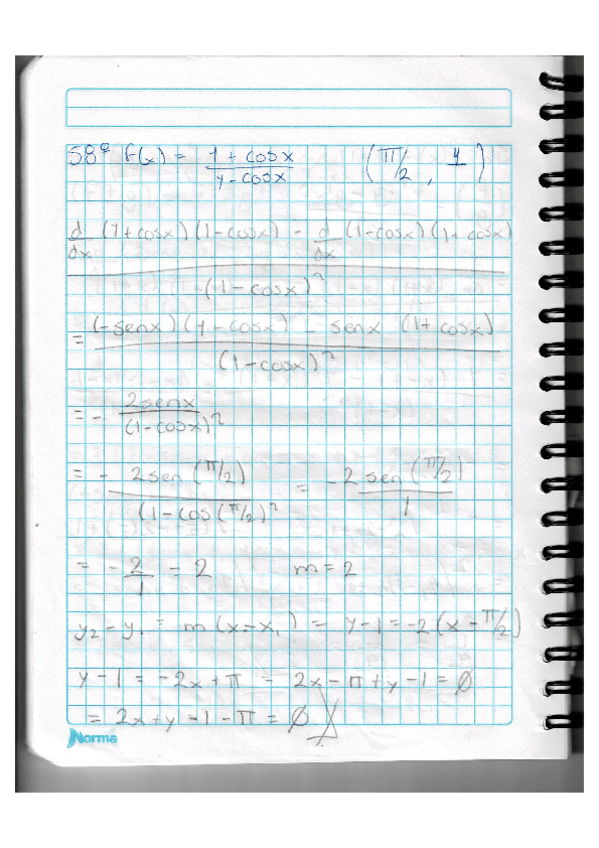 58ª f(x) = 1 + cosx / 1 - cosx (π/2, 1)
d/dx (1+cosx)(1-cosx) - d/dx (1-cosx)(1+cosx) / (1-cosx)²
= (-senx)(1-cosx) - senx (1+cosx) / (1-cosx)²
= - 2senx / (1-cosx)²
= - 2sen(π/2) / (1-cos(π/2)² = -2 sen(π/2) / 1
= - 2/1 - 2 m = 2
y₂ - y₁ = m(x-x₁) = y-1 = -2(x-π/2)
y-1 = -2x+π - 2x-π+y-1=0
= 2x+y-1-π=0
Norma